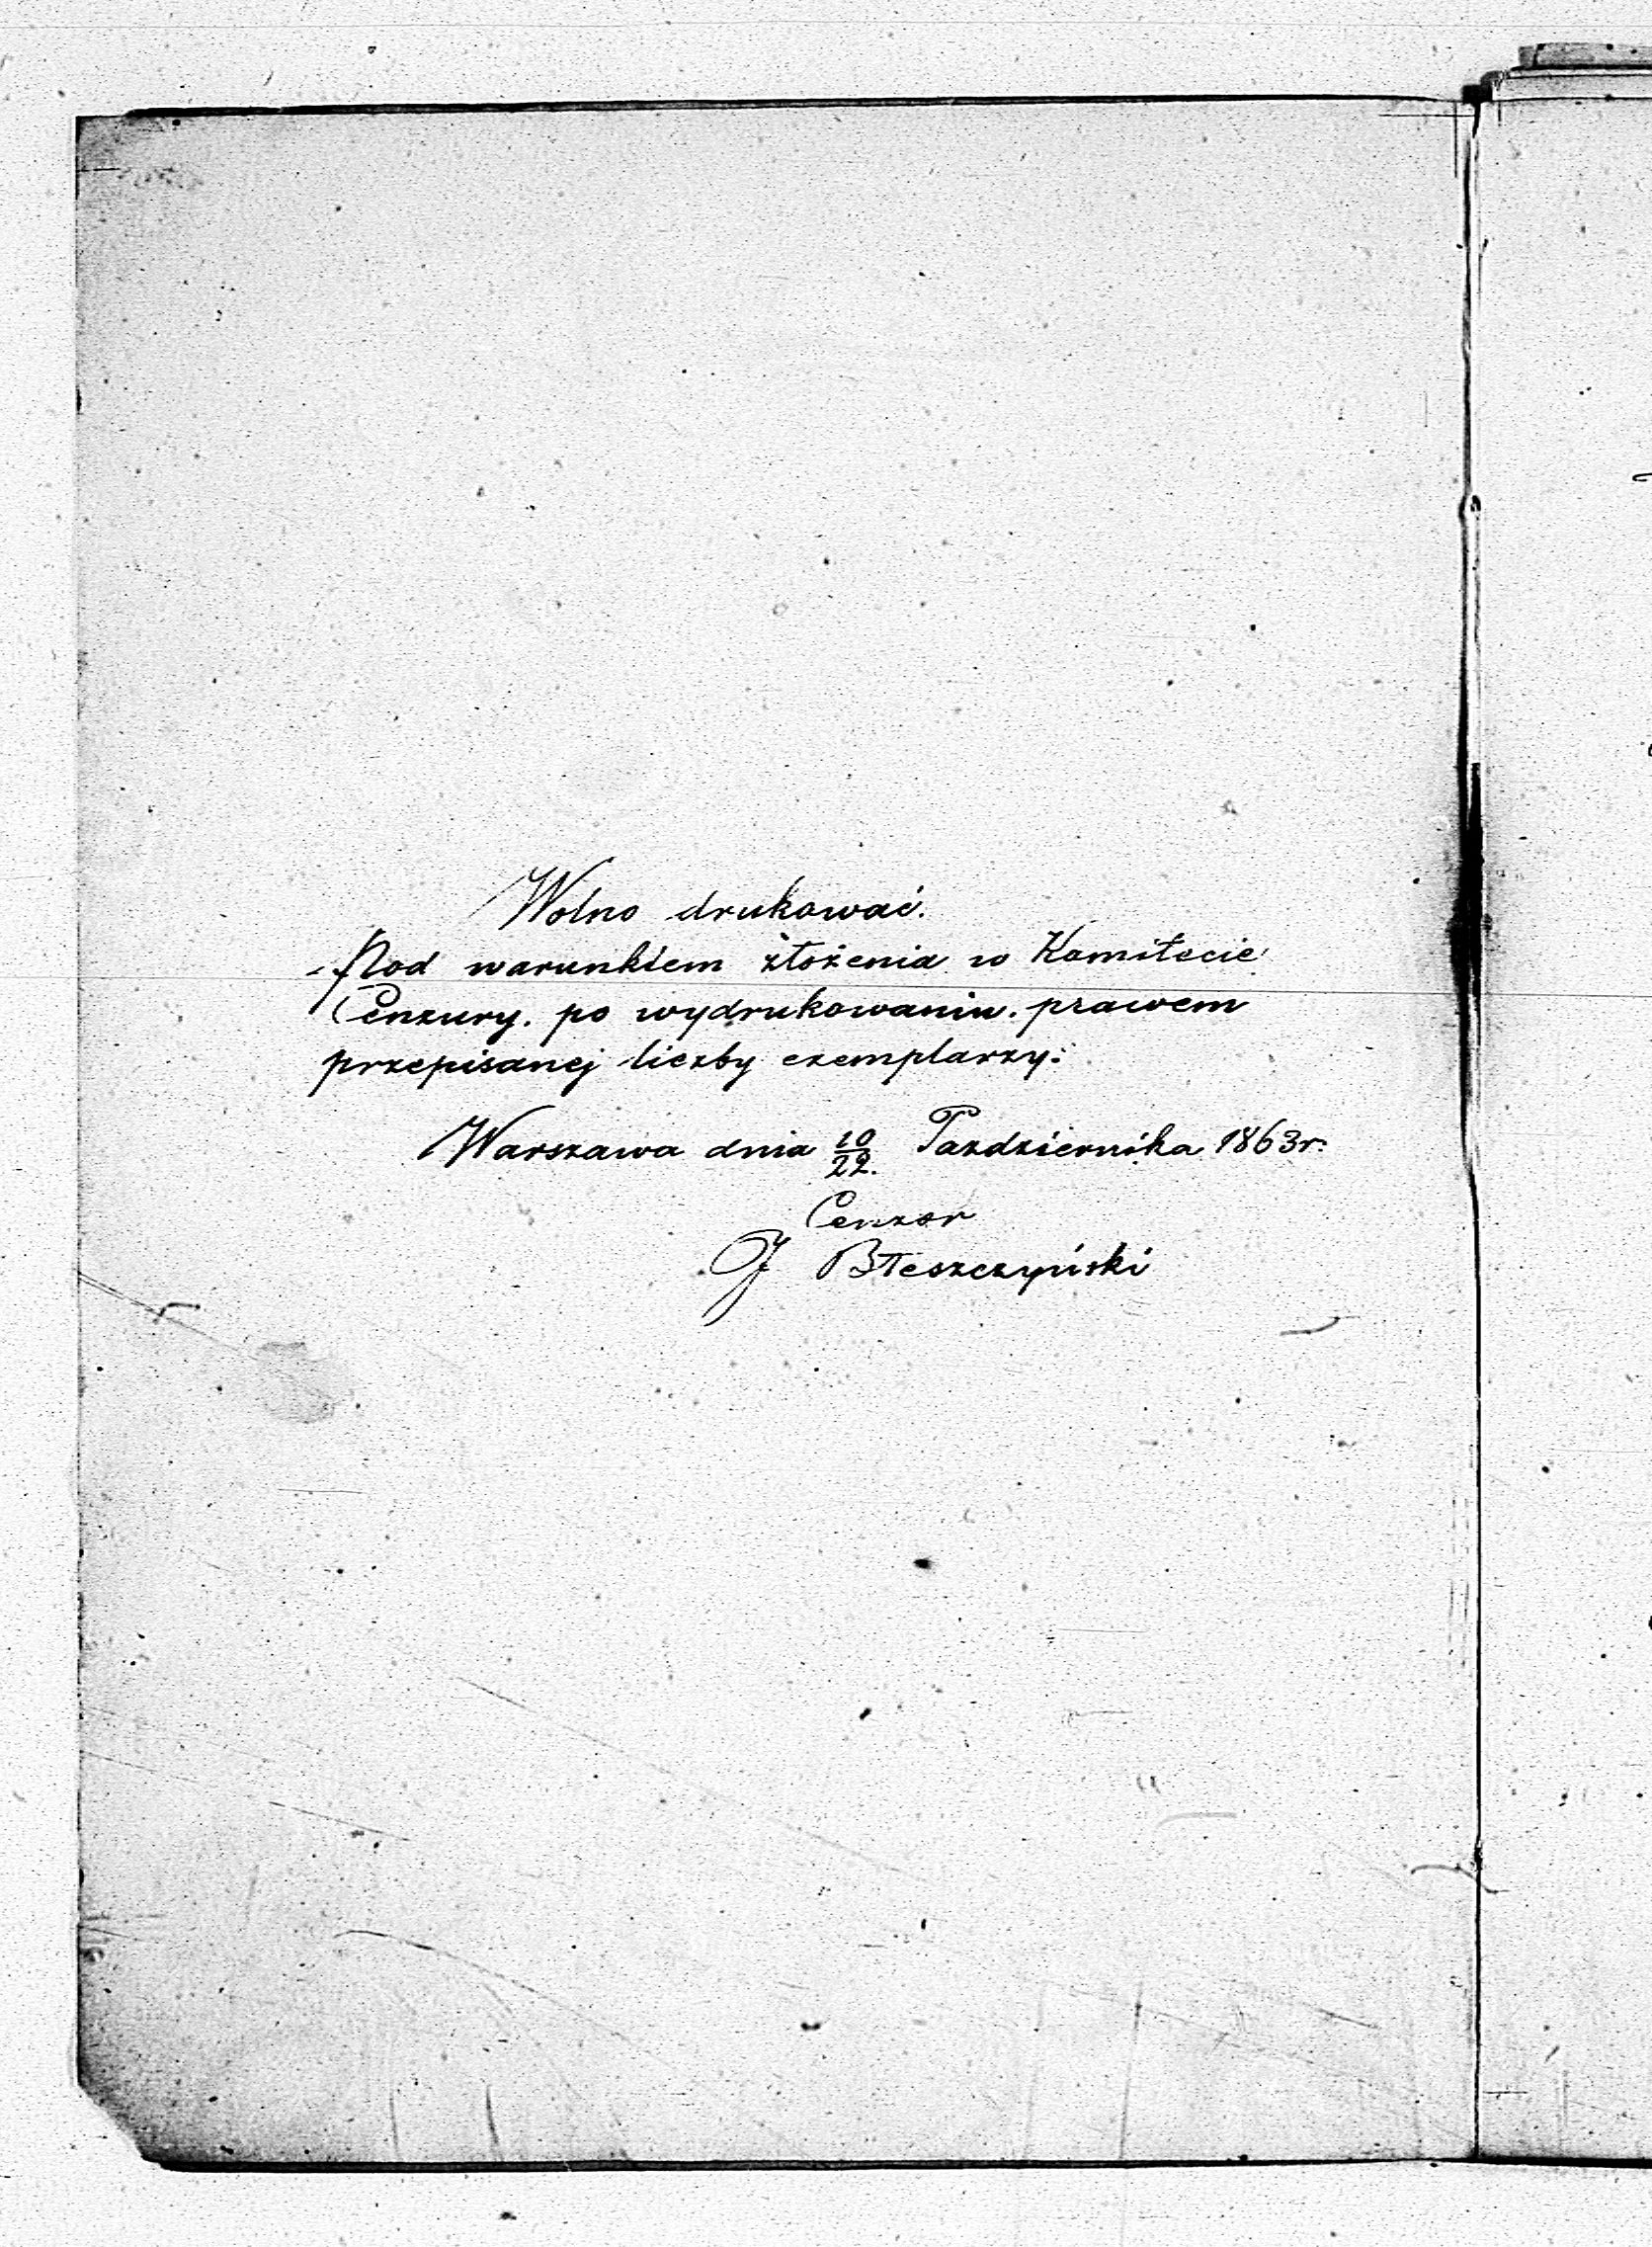 Wolno drukować.
Pod warunkiem złożenia w Komitecie
Cenzury. po wydrukowaniu. prawem
przepisanej liczby exemplarzy.
Warszawa dnia 10/22. Pazdziernika 1863 r.
Cenzor
J Błeszczyński